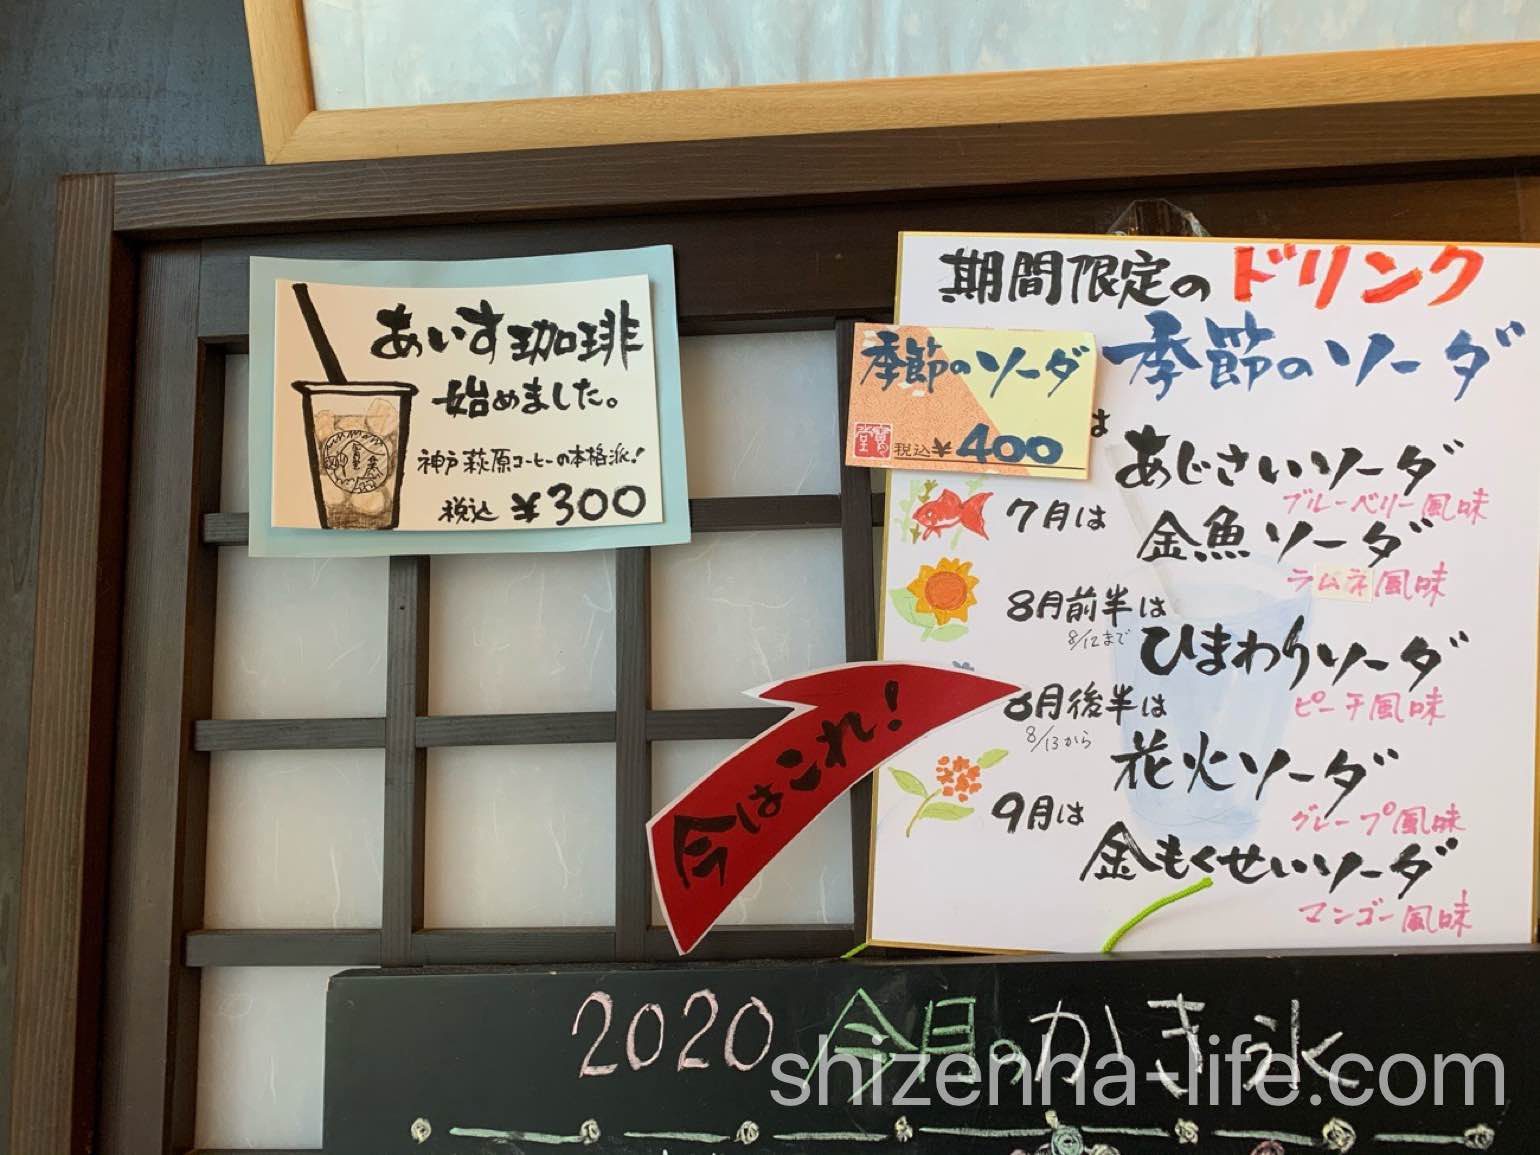 あいす珈琲
始めました。
神戸萩原コーヒーの本格派！
税込 ¥300
期間限定のドリンク
季節のソーダ
季節のソーダ
税込¥400
は
あじさいソーダ
ブルーベリー風味
7月は
金魚ソーダ
ラムネ風味
8月前半は
8/12まで
ひまわりソーダ
ピーチ風味
8月後半は
8/13から
花火ソーダ
グレープ風味
9月は
金もくせいソーダ
マンゴー風味
今はこれ！
2020 今月のかき氷
shizenha-life.com